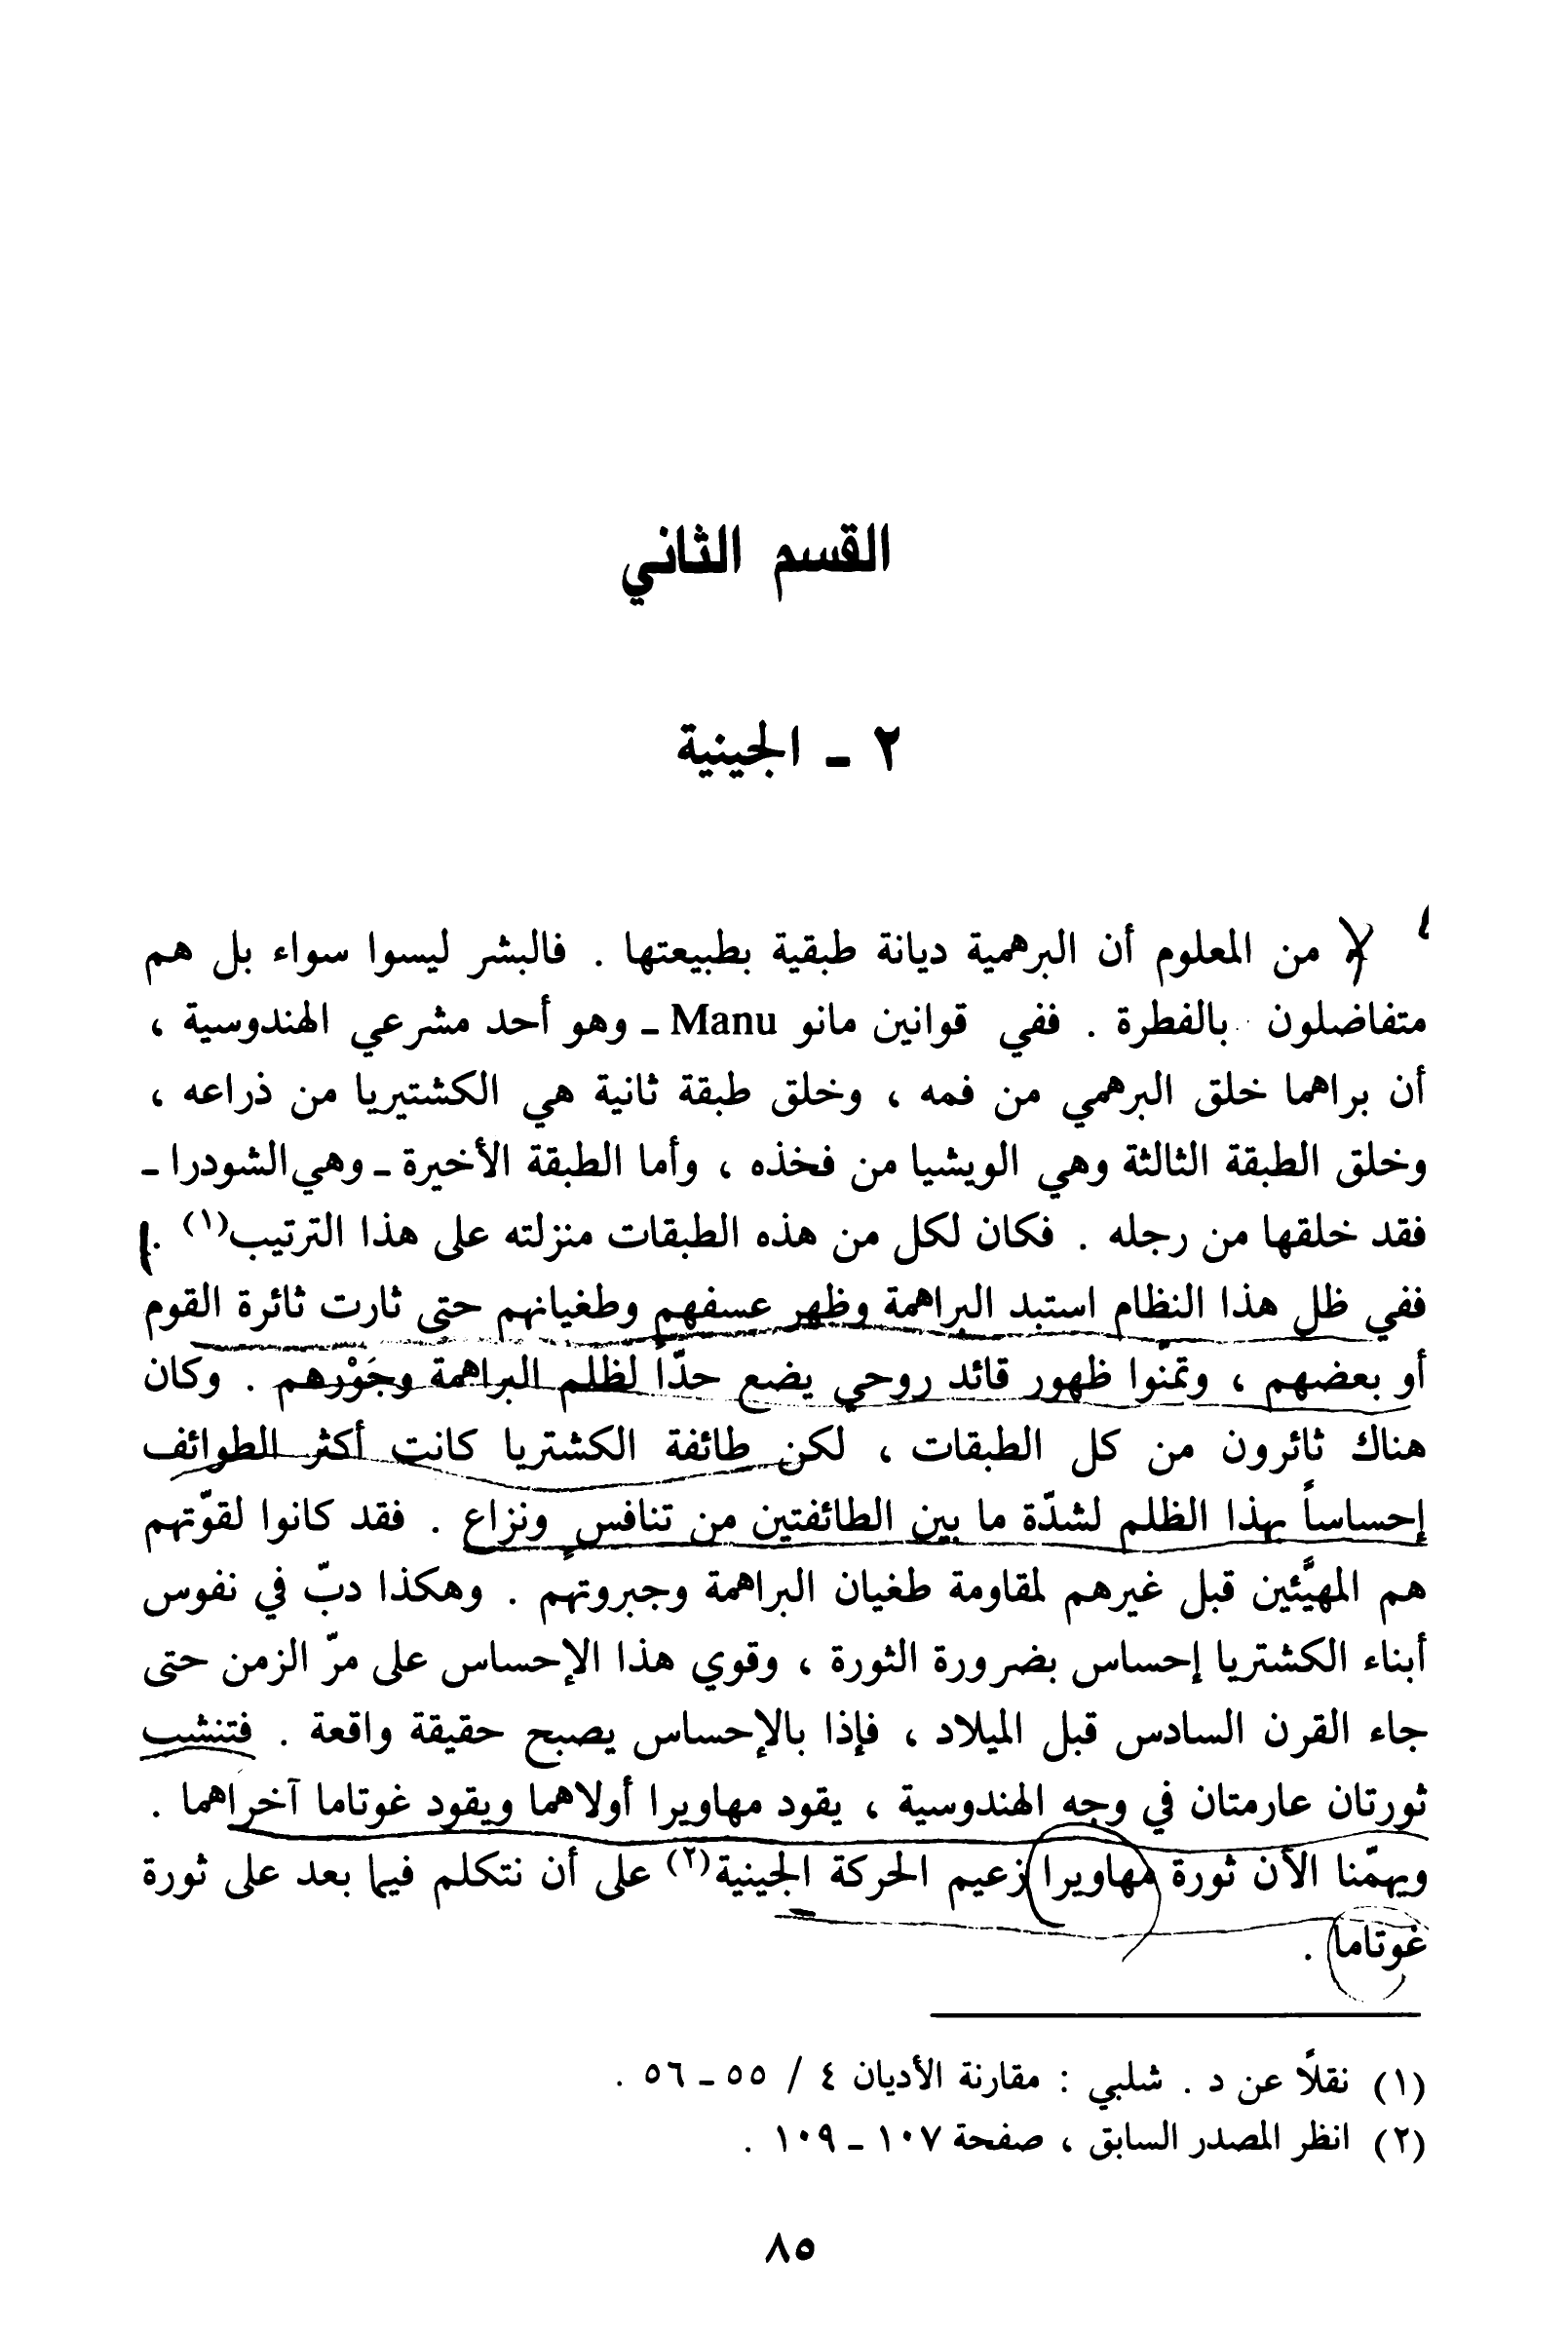 القسم الثاني
٢ - الجينية
من المعلوم أن البرهمية ديانة طبقية بطبيعتها . فالبشر ليسوا سواء بل هم
متفاضلون بالفطرة . ففي قوانين مانو Manu - وهو أحد مشرعي الهندوسية ،
أن براهما خلق البرهمي من فمه ، وخلق طبقة ثانية هي الكشتيريا من ذراعه ،
وخلق الطبقة الثالثة وهي الويشيا من فخذه ، وأما الطبقة الأخيرة - وهي الشودرا -
فقد خلقها من رجله . فكان لكل من هذه الطبقات منزلته على هذا الترتيب(١) .
ففي ظل هذا النظام استبد البراهمة وظهر عسفهم وطغيانهم حتى ثارت ثائرة القوم
أو بعضهم ، وتمنّوا ظهور قائد روحي يضع حدّاً لظلم البراهمة وجَوْرهم . وكان
هناك ثائرون من كل الطبقات ، لكن طائفة الكشتريا كانت أكثر الطوائف
إحساساً بهذا الظلم لشدّة ما بين الطائفتين من تنافسٍ ونزاع . فقد كانوا لقوّتهم
هم المهيَّئين قبل غيرهم لمقاومة طغيان البراهمة وجبروتهم . وهكذا دبّ في نفوس
أبناء الكشتريا إحساس بضرورة الثورة ، وقوي هذا الإحساس على مرّ الزمن حتى
جاء القرن السادس قبل الميلاد ، فإذا بالإحساس يصبح حقيقة واقعة . فتنشب
ثورتان عارمتان في وجه الهندوسية ، يقود مهاويرا أولاهما ويقود غوتاما آخراهما .
ويهمّنا الآن ثورة مهاويرا زعيم الحركة الجينية(٢) على أن نتكلم فيما بعد على ثورة
غوتاما .
(١) نقلًا عن د . شلبي : مقارنة الأديان ٤ / ٥٥ - ٥٦ .
(٢) انظر المصدر السابق ، صفحة ١٠٧ - ١٠٩ .
٨٥